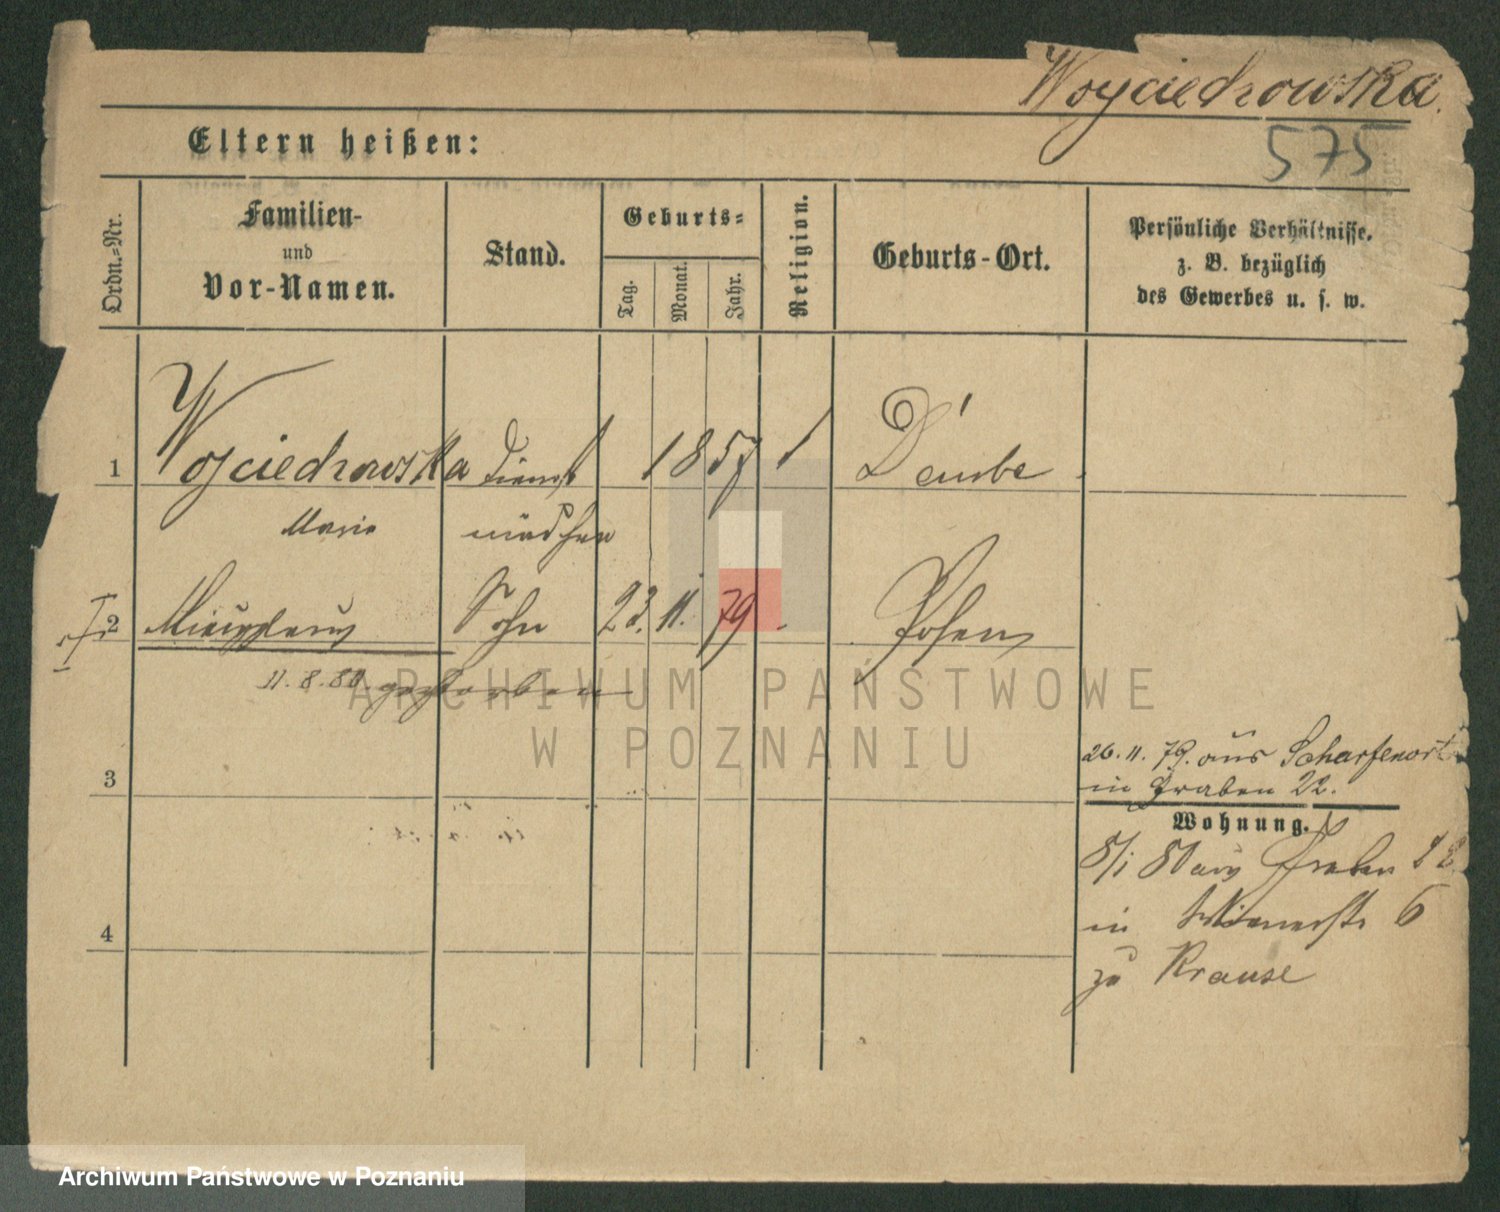 Woyciechowska.
575
Eltern heißen:
Ordn.-Nr.
Familien-
und
Vor-Namen.
Stand.
Geburts-
Tag.
Monat.
Jahr.
Religion.
Geburts-Ort.
Persönliche Verhältnisse,
z. B. bezüglich
des Gewerbes u. s. w.
1 Wojciechowska Dienst 1857
Marie mädchen
2 Sohn 23. 11. 79 Posen
11. 8. 80 gestorben
ARCHIWUM PAŃSTWOWE
W POZNANIU
3
26. 11. 79. aus Scharfenort
in Graben 22.
Wohnung.
8/1 80 aus Graben 22
in 6
zu Krause
4
Archiwum Państwowe w Poznaniu